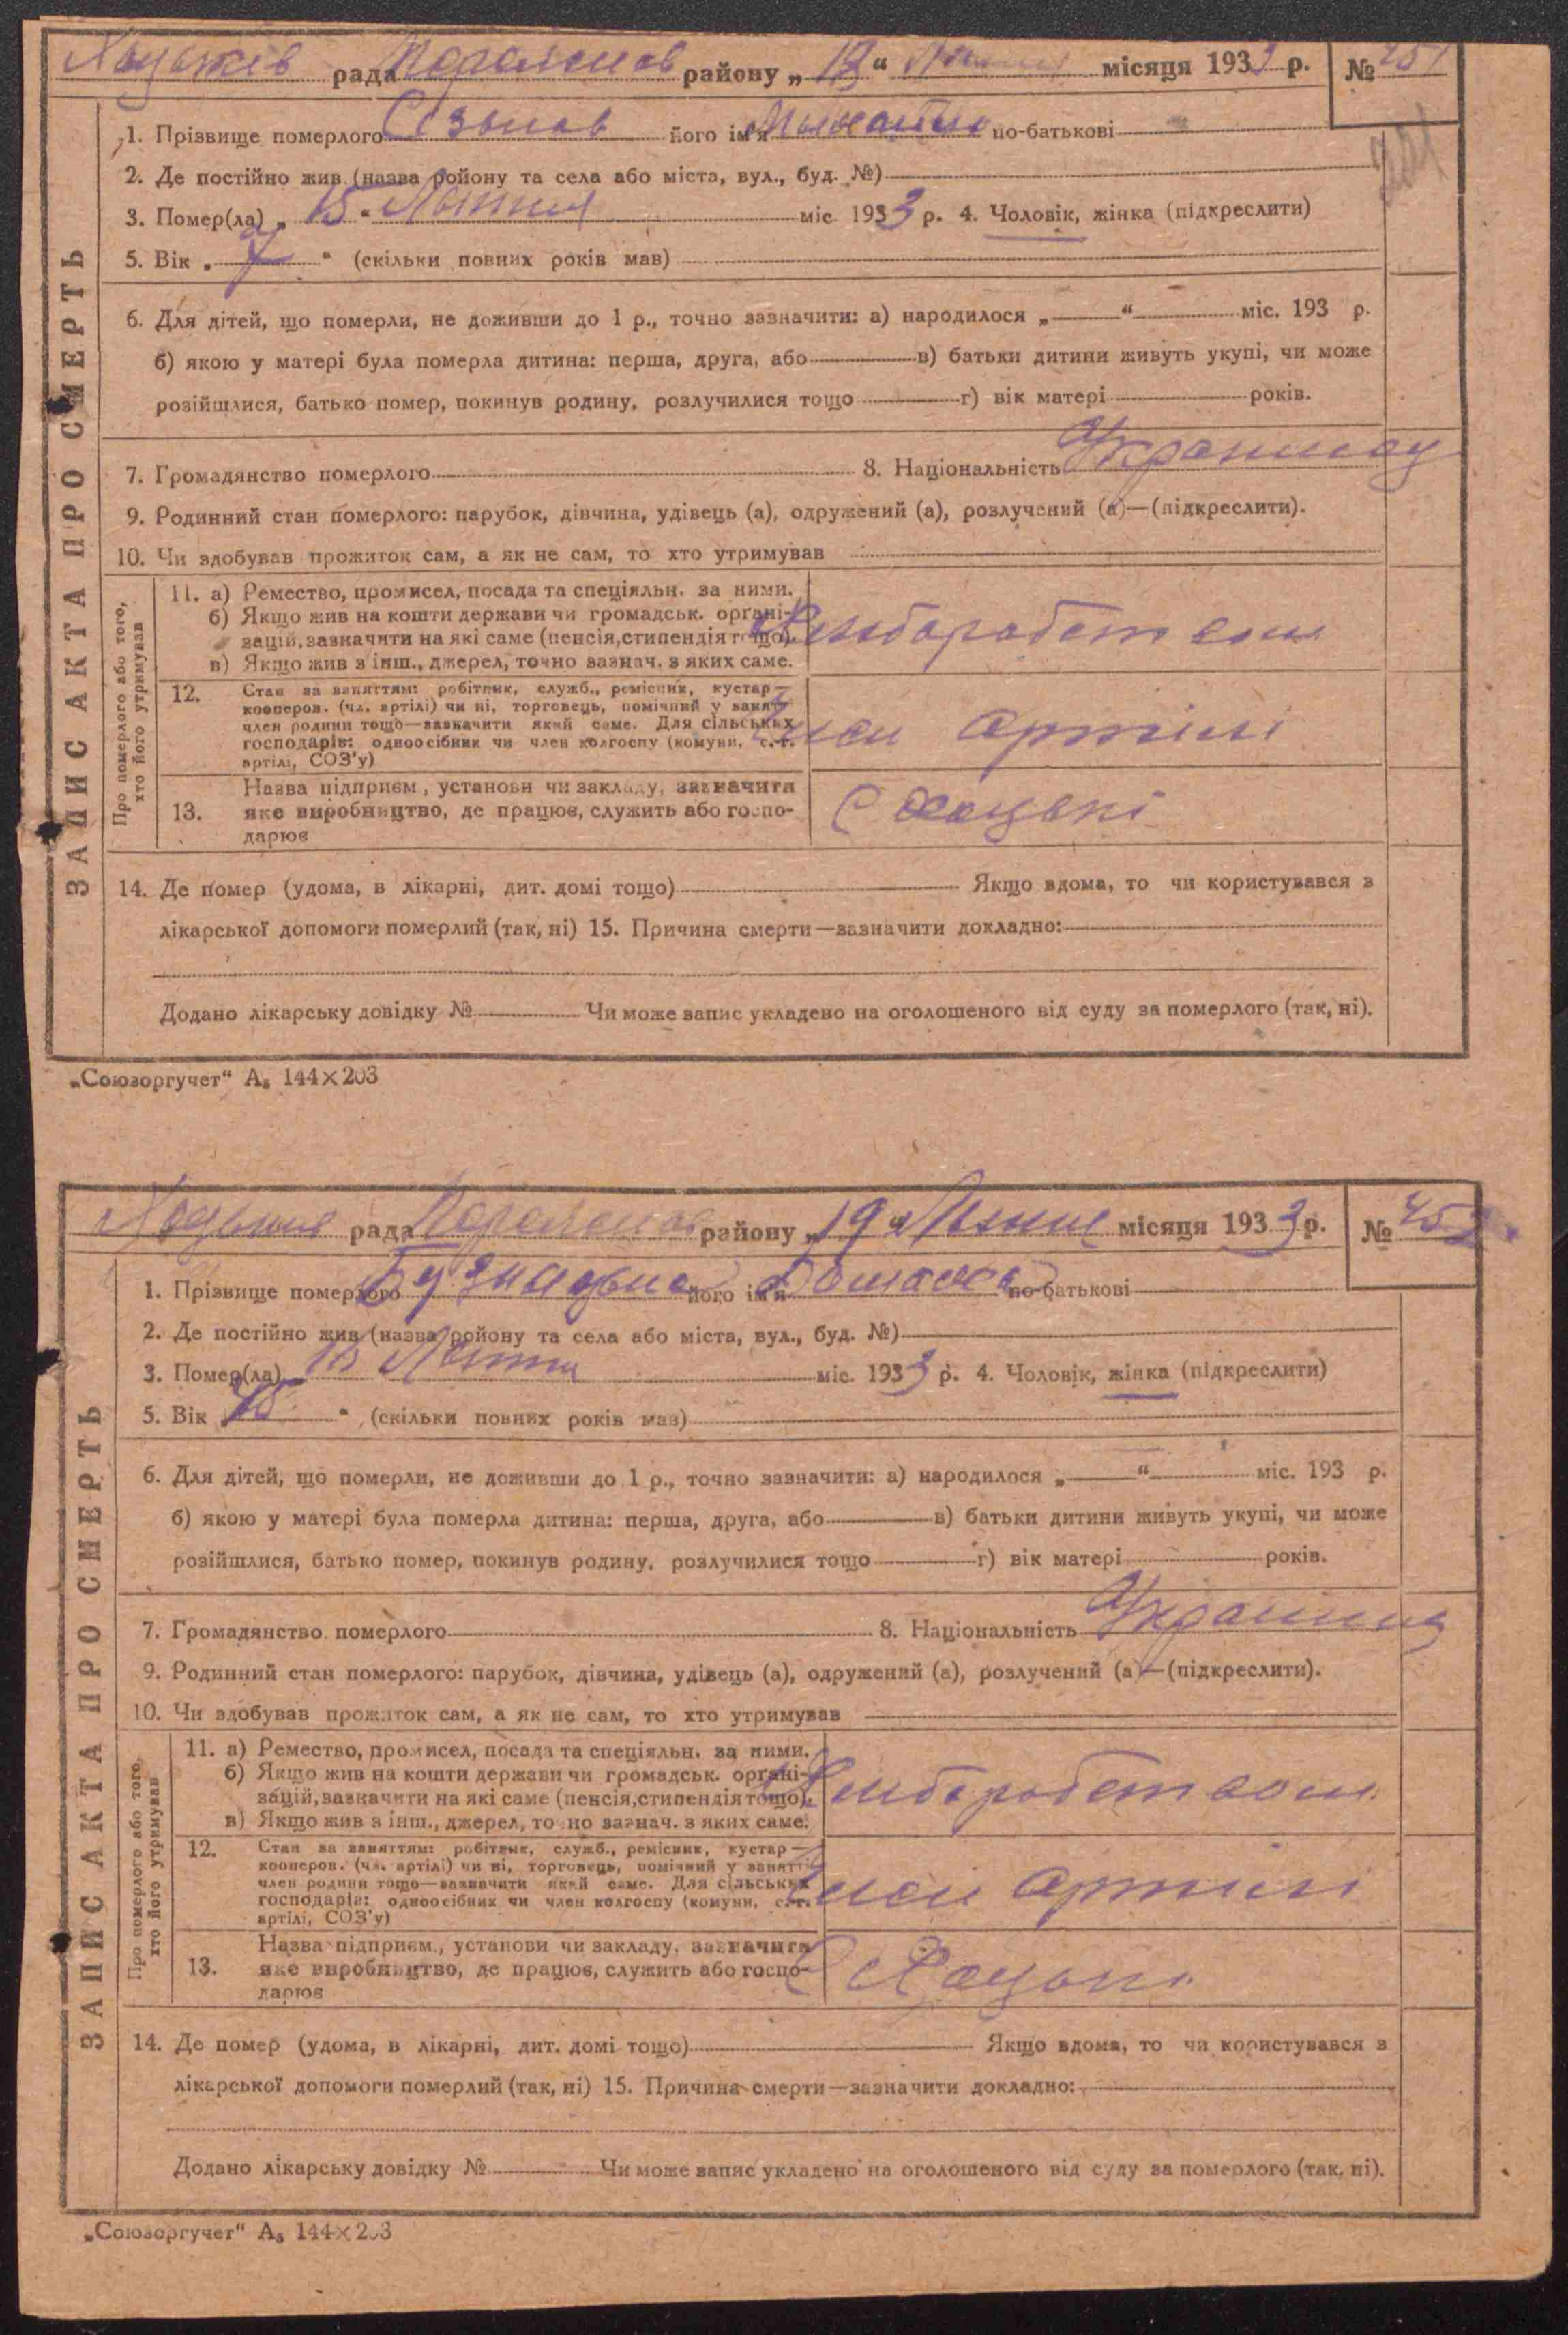 рада района „ 19 “ місяця 1933 р. № 451
1. Прізвище померлого Сізонов його ім'я Михайло по-батькові
2. Де постійно жив (назва ройону та села або міста, вул., буд. №)
3. Помер(ла) „ 15 “ міс. 1933 р. 4. Чоловік, жінка (підкреслити)
5. Вік „ 7 “ (скільки повних років мав)
6. Для дітей, що померли, не доживши до 1 р., точно зазначити: а) народилося „ “ міс. 193 р.
б) якою у матері була померла дитина: перша, друга, або в) батьки дитини живуть укупі, чи може
розійшлися, батько помер, покинув родину, розлучилися тощо г) вік матері років.
7. Громадянство померлого 8. Національність
9. Родинний стан померлого: парубок, дівчина, удівець (а), одружений (а), розлучений (а)—(підкреслити).
10. Чи здобував прожиток сам, а як не сам, то хто утримував
ЗАПИС АКТА ПРО СМЕРТЬ
Про померлого або того,
хто його утримував
11. а) Ремество, промисел, посада та спеціяльн. за ними.
б) Якщо жив на кошти держави чи громадськ. орґані-
зацій, зазначити на які саме (пенсія, стипендія тощо).
в) Якщо жив з інш., джерел, точно зазнач. з яких саме.
12. Стан за заняттям: робітник, служб., ремісник, кустар—
кооперов. (чл. артілі) чи ні, торговець, помічний у занятті
член родини тощо—зазначити який саме. Для сільських
господарів: одноосібник чи член колгоспу (комуни, с.-г.
артілі, СОЗ'у)
член артілі
13. Назва підприєм., установи чи закладу, зазначити
яке виробництво, де працює, служить або госпо-
дарює
14. Де помер (удома, в лікарні, дит. домі тощо) Якщо вдома, то чи користувався з
лікарської допомоги померлий (так, ні) 15. Причина смерти—зазначити докладно:
Додано лікарську довідку № Чи може запис укладено на оголошеного від суду за померлого (так, ні).
„Союзоргучет“ А₅ 144×203
рада району „ 19 “ місяця 1933 р. № 452
1. Прізвище померлого його ім'я по-батькові
2. Де постійно жив (назва ройону та села або міста, вул., буд. №)
3. Помер(ла) міс. 1933 р. 4. Чоловік, жінка (підкреслити)
5. Вік „ “ (скільки повних років мав)
6. Для дітей, що померли, не доживши до 1 р., точно зазначити: а) народилося „ “ міс. 193 р.
б) якою у матері була померла дитина: перша, друга, або в) батьки дитини живуть укупі, чи може
розійшлися, батько помер, покинув родину, розлучилися тощо г) вік матері років.
7. Громадянство померлого 8. Національність
9. Родинний стан померлого: парубок, дівчина, удівець (а), одружений (а), розлучений (а)—(підкреслити).
10. Чи здобував прожиток сам, а як не сам, то хто утримував
ЗАПИС АКТА ПРО СМЕРТЬ
Про померлого або того,
хто його утримував
11. а) Ремество, промисел, посада та спеціяльн. за ними.
б) Якщо жив на кошти держави чи громадськ. орґані-
зацій, зазначити на які саме (пенсія, стипендія тощо).
в) Якщо жив з інш., джерел, точно зазнач. з яких саме.
12. Стан за заняттям: робітник, служб., ремісник, кустар—
кооперов. (чл. артілі) чи ні, торговець, помічний у занятті
член родини тощо—зазначити який саме. Для сільських
господарів: одноосібник чи член колгоспу (комуни, с.-г.
артілі, СОЗ'у)
член артілі
13. Назва підприєм., установи чи закладу, зазначити
яке виробництво, де працює, служить або госпо-
дарює
14. Де помер (удома, в лікарні, дит. домі тощо) Якщо вдома, то чи користувався з
лікарської допомоги померлий (так, ні) 15. Причина смерти—зазначити докладно:
Додано лікарську довідку № Чи може запис укладено на оголошеного від суду за померлого (так, ні).
„Союзоргучет“ А₅ 144×203